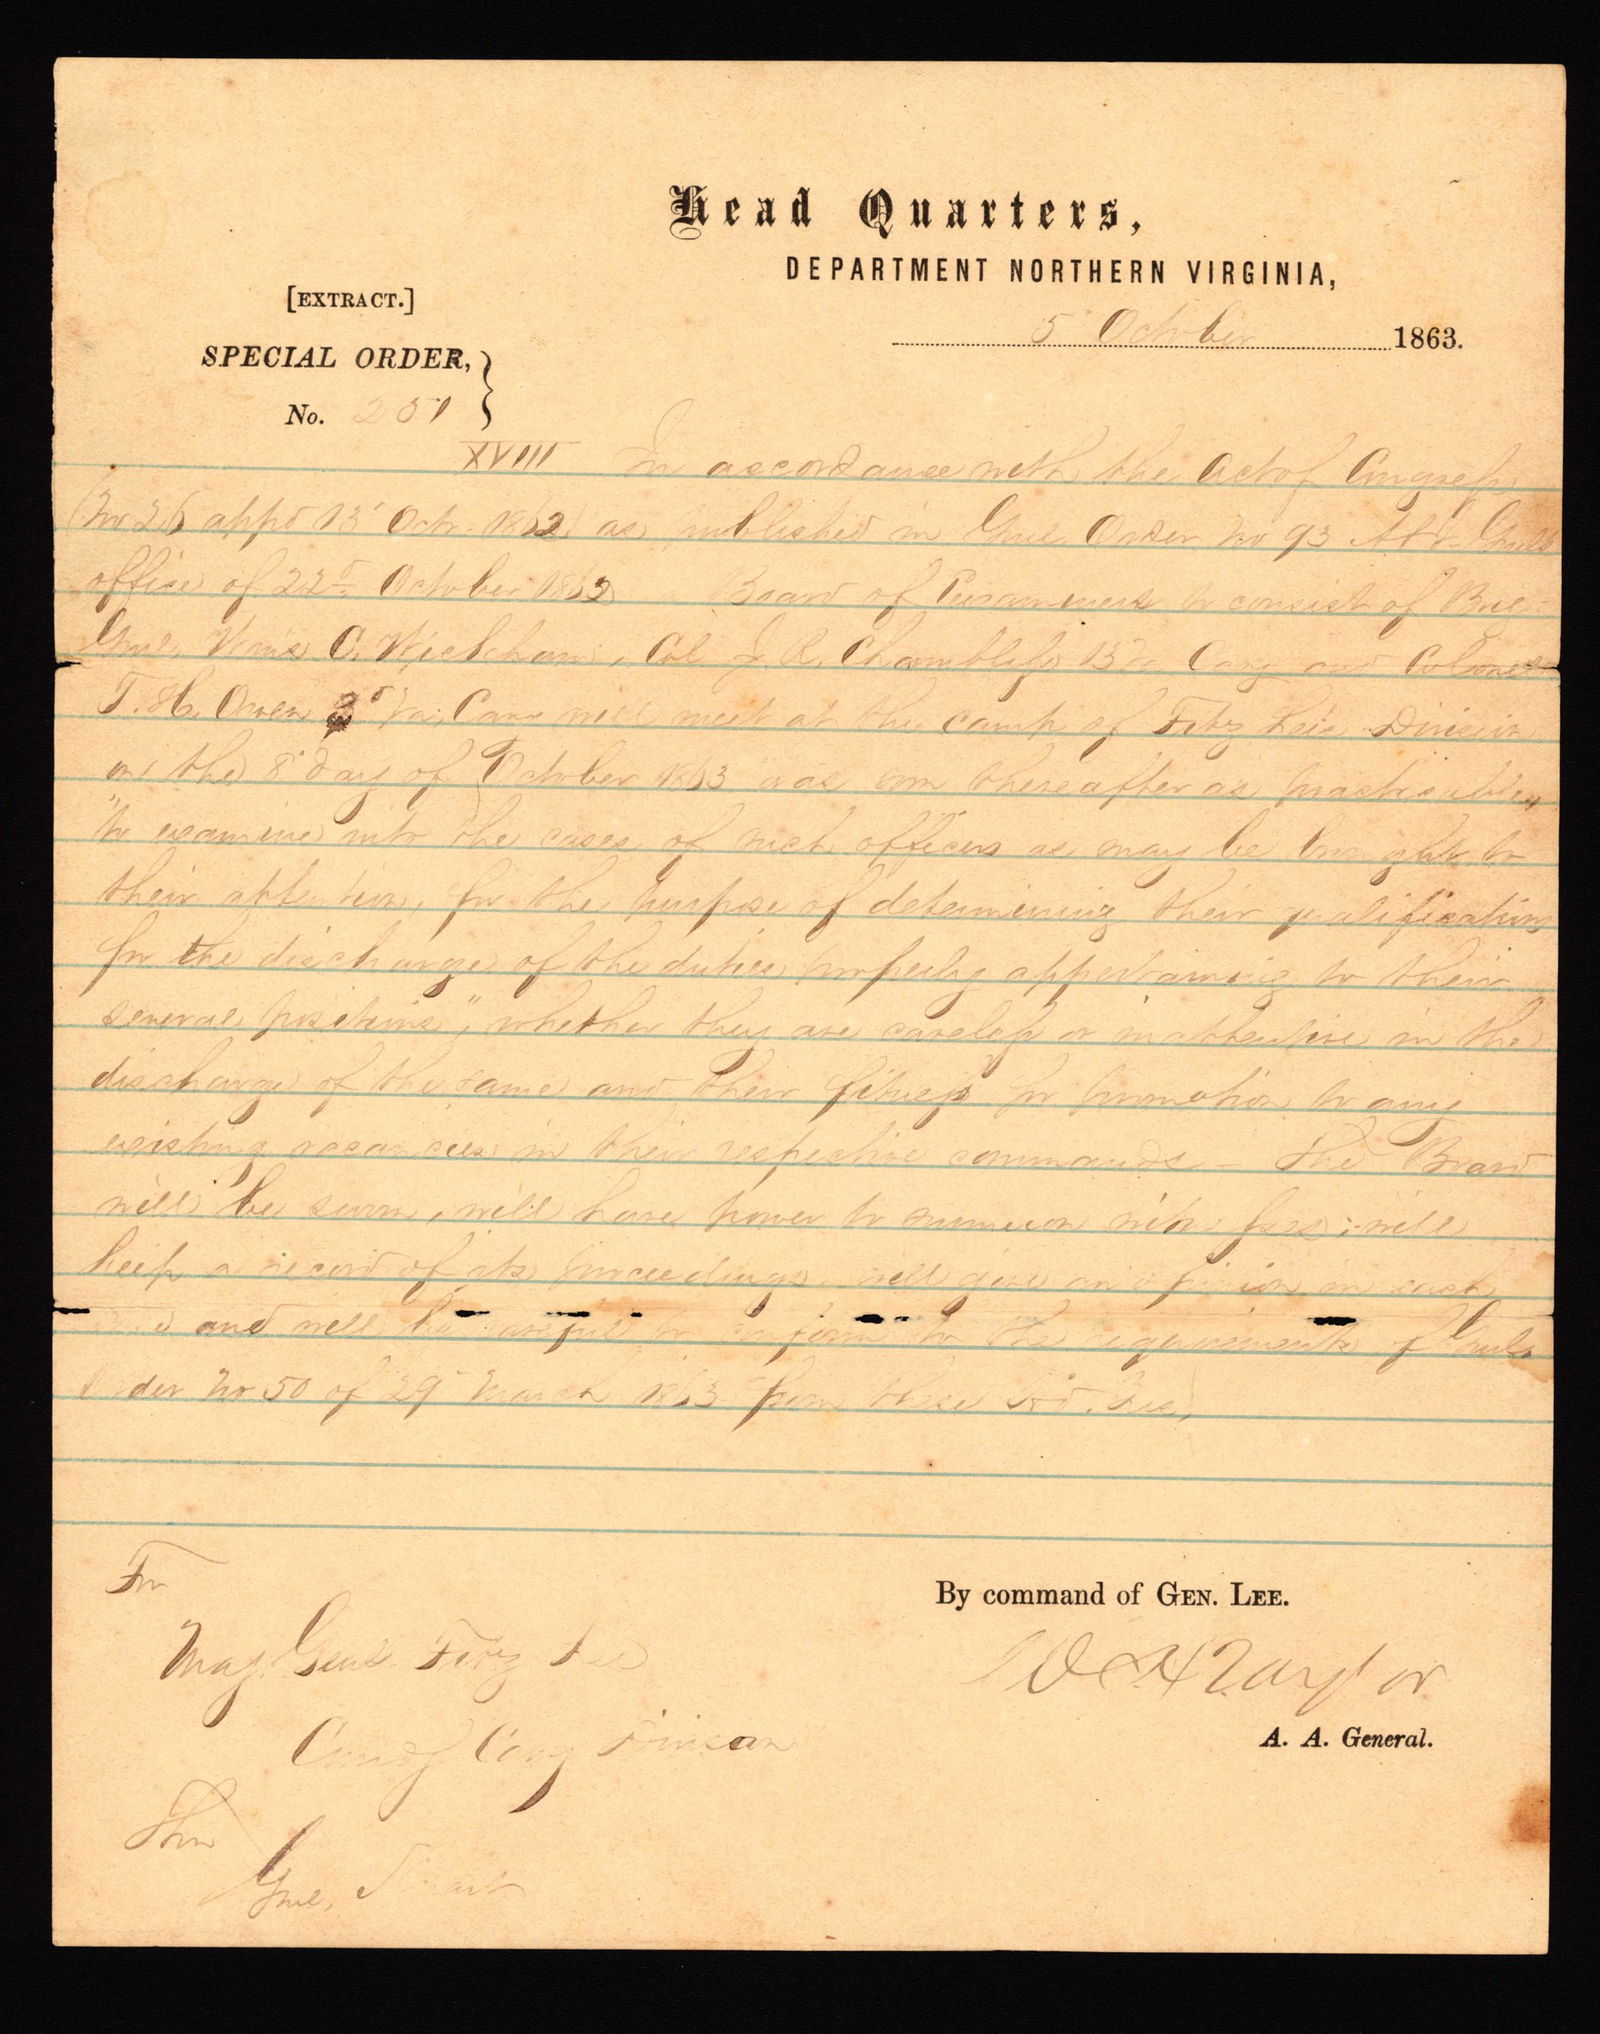 Head Quarters,
DEPARTMENT NORTHERN VIRGINIA,
[EXTRACT.]
5 October 1863.
SPECIAL ORDER,
No. 251
XVIII In accordance with the Act of Congress
(No 26 appd 13 Oct. 1862) as published in Genl Order No 93 Adjt Genls
office of 22d October 1862 a Board of Examiners to consist of Brig
Genl Wms C. Wickham, Col J. R. Chambliss 13 Va Cavy and Colonel
T. H. Owen 3d Va. Cav will meet at the camp of Fitz Lee's Division
on the 8 day of October 1863 or as soon thereafter as practicable,
"to examine into the cases of such officers as may be brought to
their attention, for the purpose of determining their qualifications
for the discharge of the duties properly appertaining to their
several positions," whether they are careless or inattentive in the
discharge of the same and their fitness for promotion to any
existing vacancies in their respective commands – The Board
will be sworn, will have power to summon witnesses; will
keep a record of its proceedings, will give an opinion in each
case and will be careful to conform to the requirements of Genl
Order No. 50 of 29 March 1863 from these Hd. Qrs.
For
Maj. Genl Fitz Lee
Comdg Cavy Division
Thro
Genl. Stuart
By command of GEN. LEE.
W H Taylor
A. A. General.